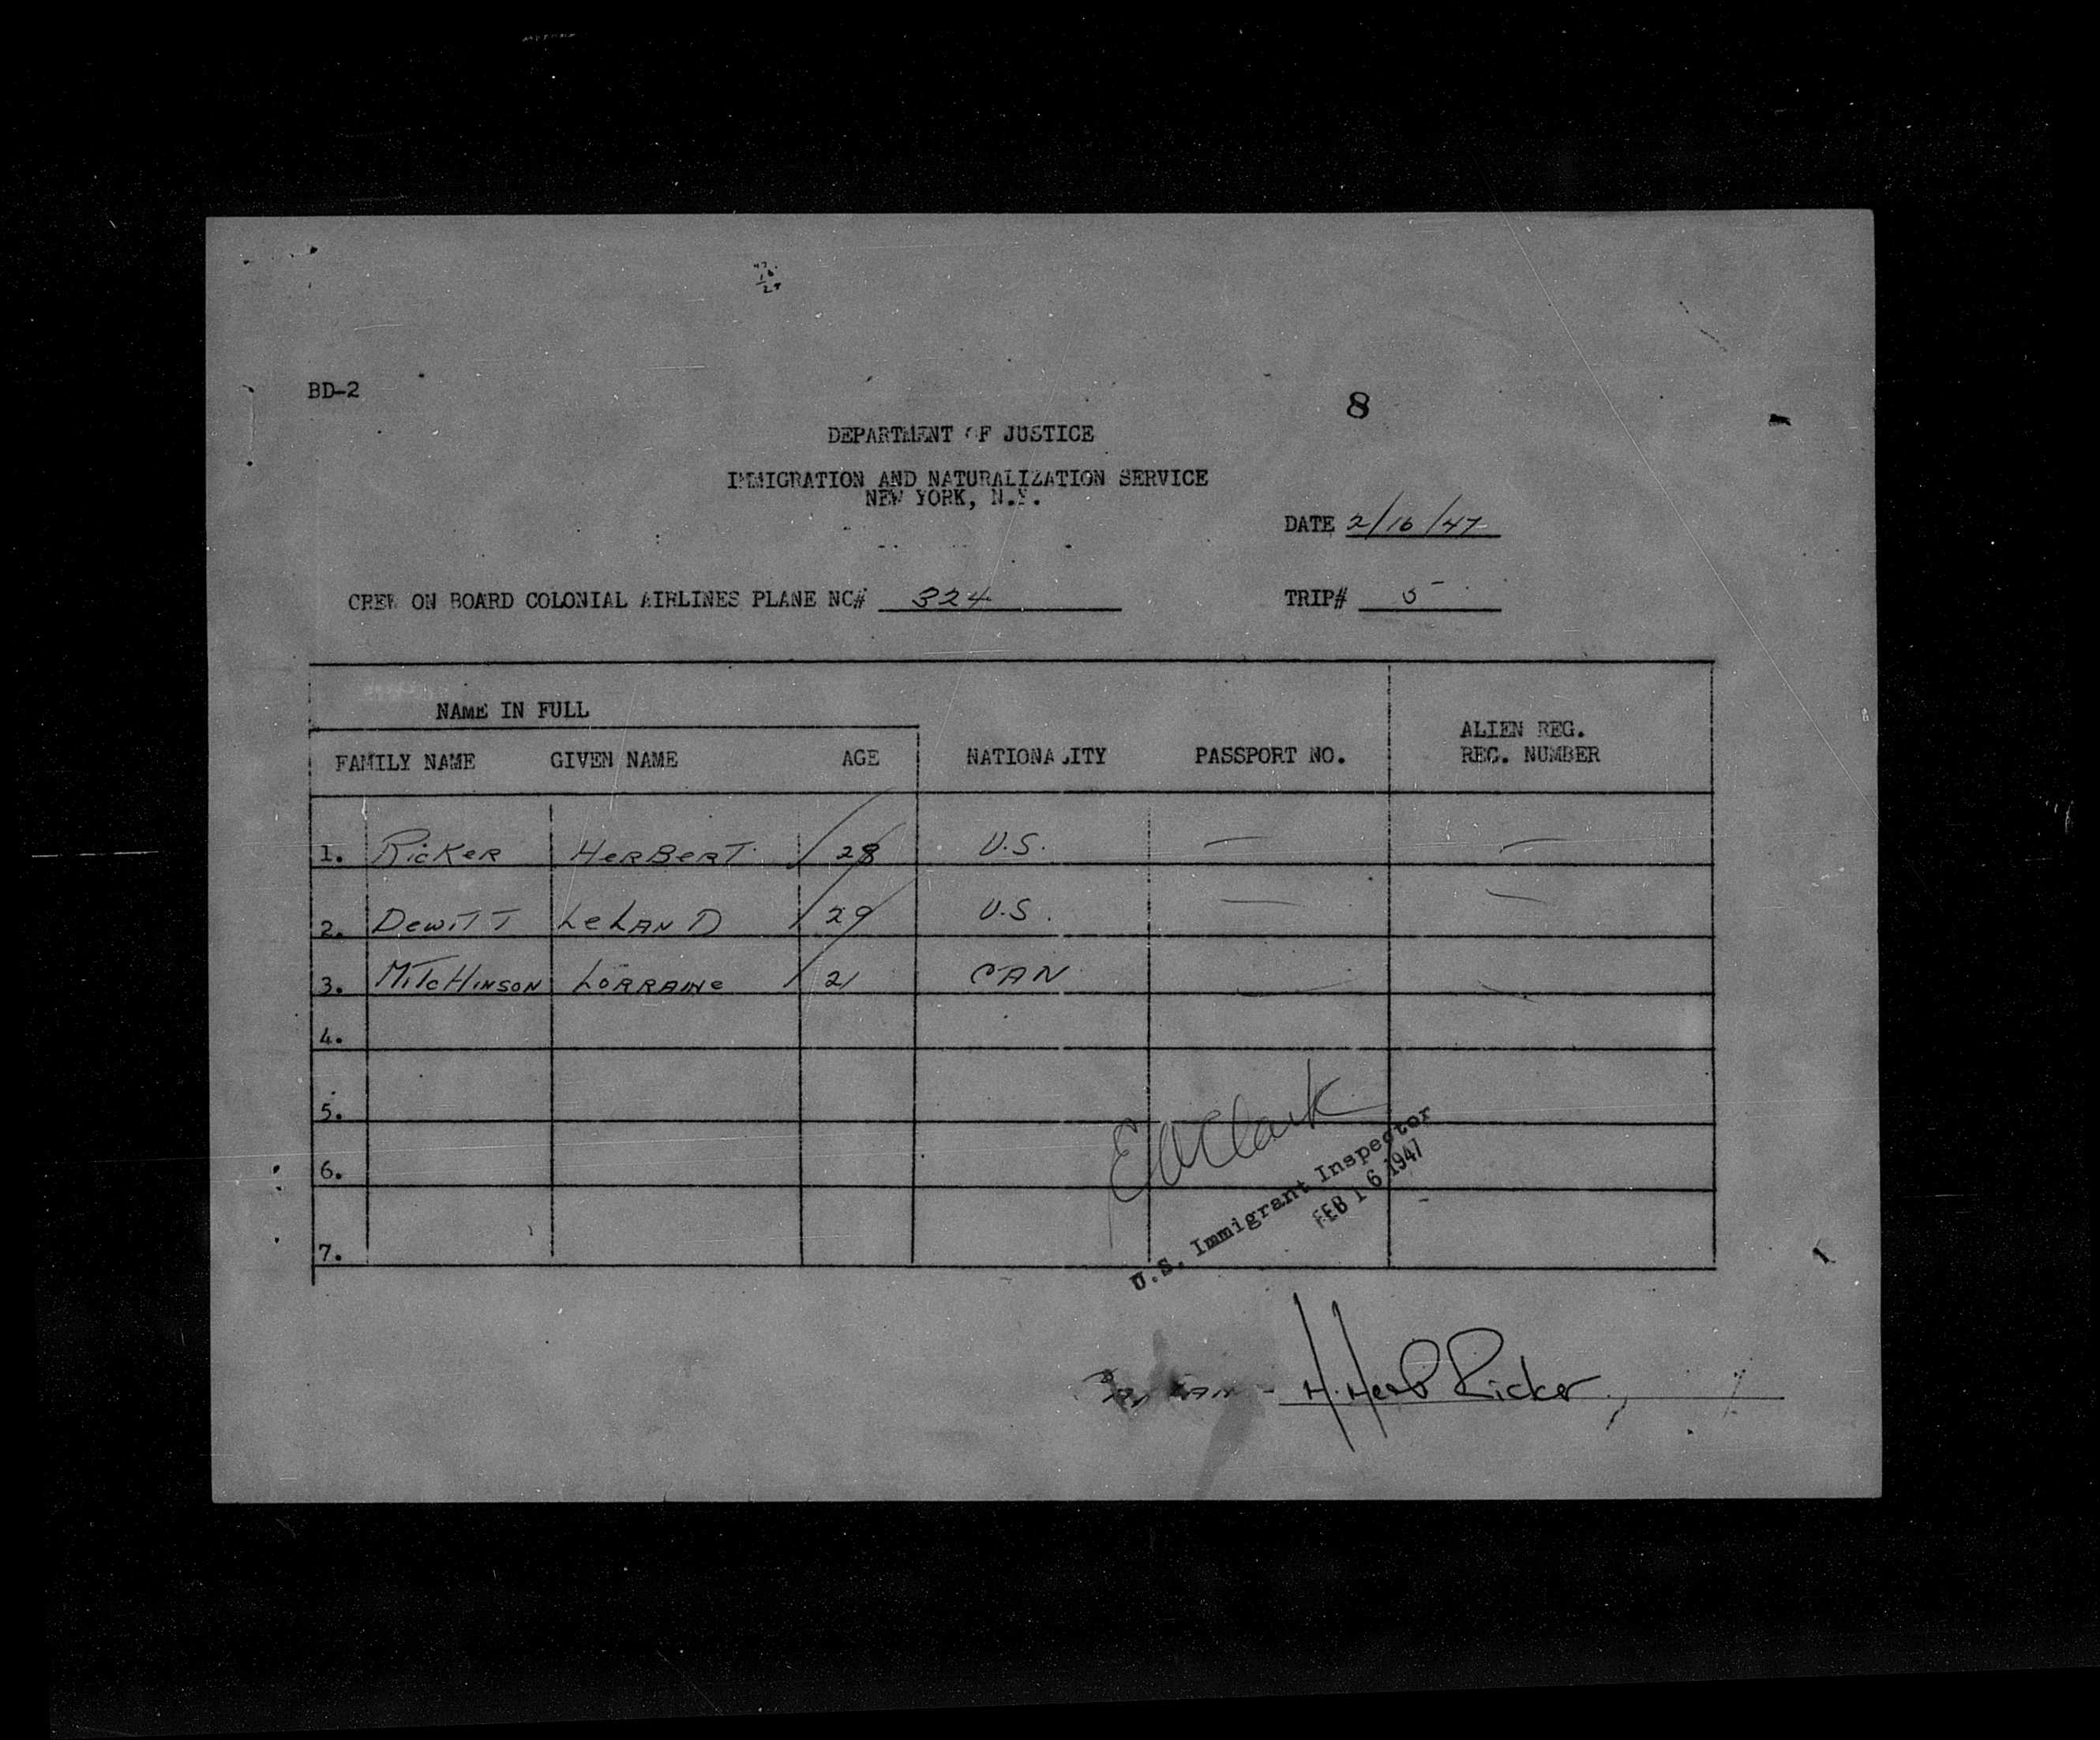 BD-2
8
DEPARTMENT OF JUSTICE
IMMIGRATION AND NATURALIZATION SERVICE
NEW YORK, N.Y.
DATE 2/16/47
CREW ON BOARD COLONIAL AIRLINES PLANE NC# 324 TRIP# 5
NAME IN FULL
FAMILY NAME GIVEN NAME AGE NATIONALITY PASSPORT NO. ALIEN REG. REG. NUMBER
1. RicKeR HeRBeRT 28 U.S. — —
2. DewiTT LeLAND 29 U.S. — —
3. MiTcHiNSON LORRAiNe 21 CAN — —
4.
5.
6.
7.
E A Clark
U.S. Immigrant Inspector
FEB 16 1947
H. Herb Ricker